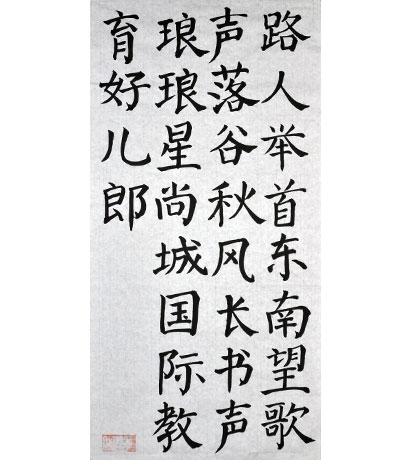 路人举首东南望歌
声落谷秋风长书声
琅琅星尚城国际教
育好儿郎